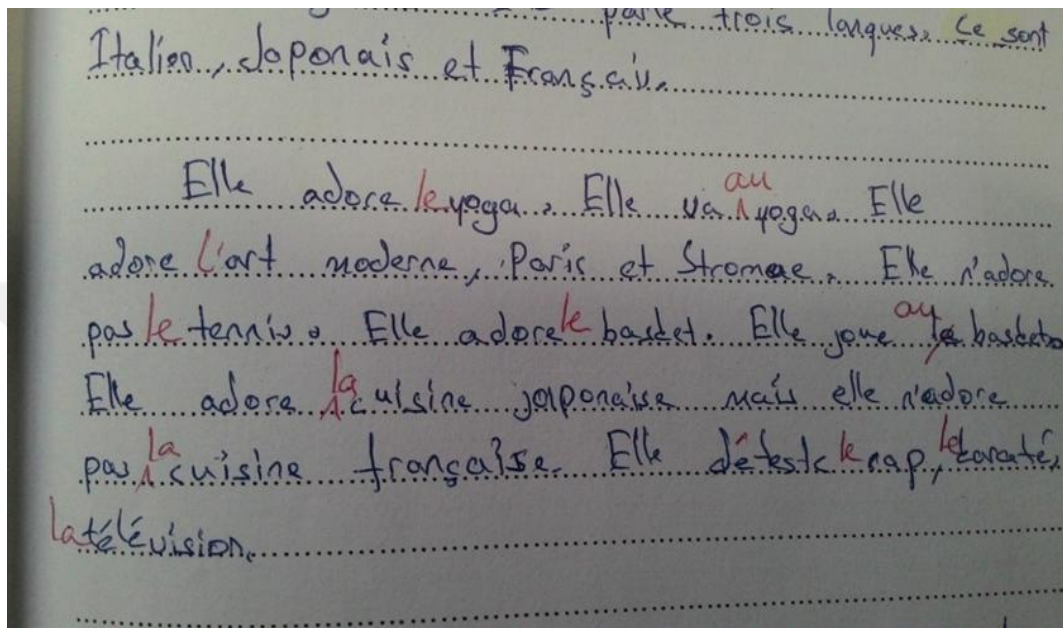 parle trois langues. Ce sont
Italien, Japonais et Français.
Elle adore le yoga. Elle va au yoga. Elle
adore l'art moderne, Paris et Stromae. Elle n'adore
pas le tennis. Elle adore le basket. Elle joue au basket.
Elle adore la cuisine japonaise mais elle n'adore
pas la cuisine française. Elle déteste le rap, le karaté,
la télévision.